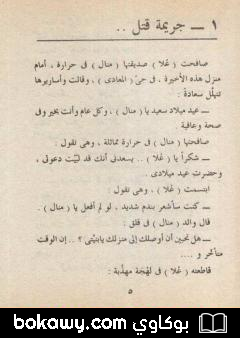 ١ ــ جريمة قتل ..
صافحت ( عُلا ) صديقتها ( منال ) فى حرارة ، أمام
منزل هذه الأخيرة ، فى حىّ ( المعادى ) ، وقالت وأساريرها
تتهلّل سعادةً :
ــ عيد ميلاد سعيد يا ( منال ) ، وكل عام وأنت بخير وفى
صحة وعافية
صافحتها ( منال ) فى حرارة مماثلة ، وهى تقول :
ــ شكرًا يا ( عُلا ) .. يسعدنى أنك قد لبّيت دعوتى ،
وحضرتِ عيد ميلادى .
ابتسمت ( عُلا ) ، وهى تقول :
ــ كنت سأشعر بندم شديد ، لو لم أفعل يا ( منال ) .
قال والد ( منال ) فى قلق :
ــ هل تحبين أن أوصلك إلى منزلك يابنيّتى ؟ .. إن الوقت
متأخر و ....
قاطعته ( عُلا ) فى لهجة مهذّبة :
٥
بوكاوي bokawy.com